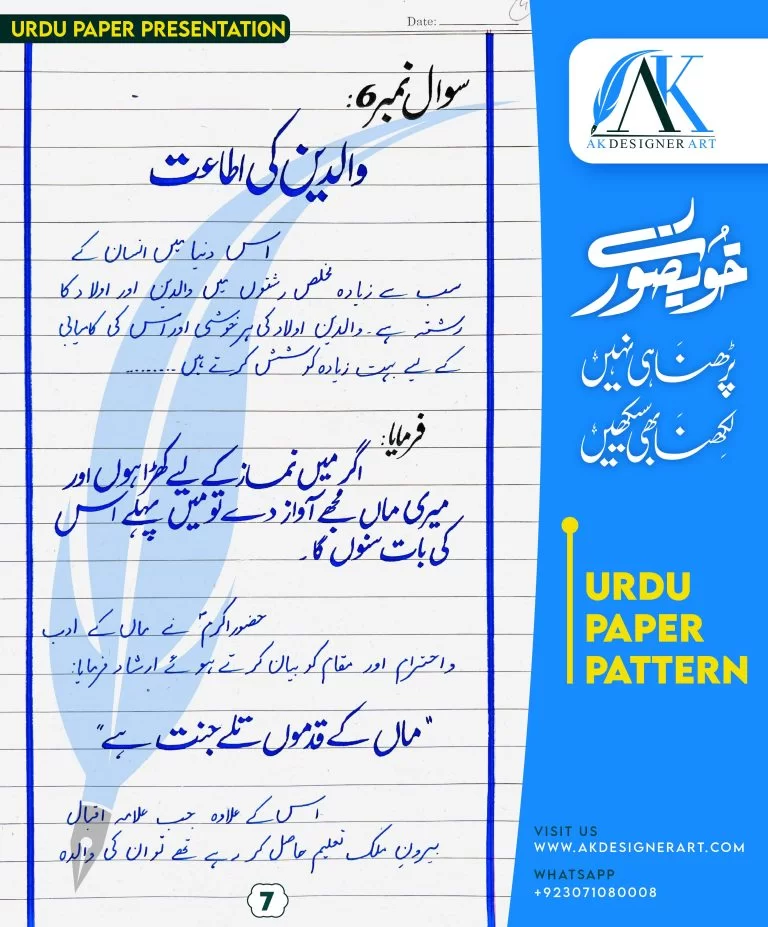 URDU PAPER PRESENTATION
Date:
سوال نمبر 6:
والدین کی اطاعت
اس دنیا میں انسان کے
سب سے زیادہ مخلص رشتوں میں والدین اور اولاد کا
رشتہ ہے۔ والدین اولاد کی ہر خوشی اور اس کی کامیابی
کے لیے بہت زیادہ کوشش کرتے ہیں .........
فرمایا:
اگر میں نماز کے لیے کھڑا ہوں اور
میری ماں مجھے آواز دے تو میں پہلے اس
کی بات سنوں گا۔
حضور اکرمؐ نے ماں کے ادب
و احترام اور مقام کو بیان کرتے ہوئے ارشاد فرمایا:
"ماں کے قدموں تلے جنت ہے"
اس کے علاوہ جب علامہ اقبال
بیرونِ ملک تعلیم حاصل کر رہے تھے تو ان کی والدہ
7
AK
AK DESIGNER ART
خوبصورتی
پڑھنا ہی نہیں
لکھنا بھی سیکھیں
URDU
PAPER
PATTERN
VISIT US
WWW.AKDESIGNERART.COM
WHATSAPP
+923071080008